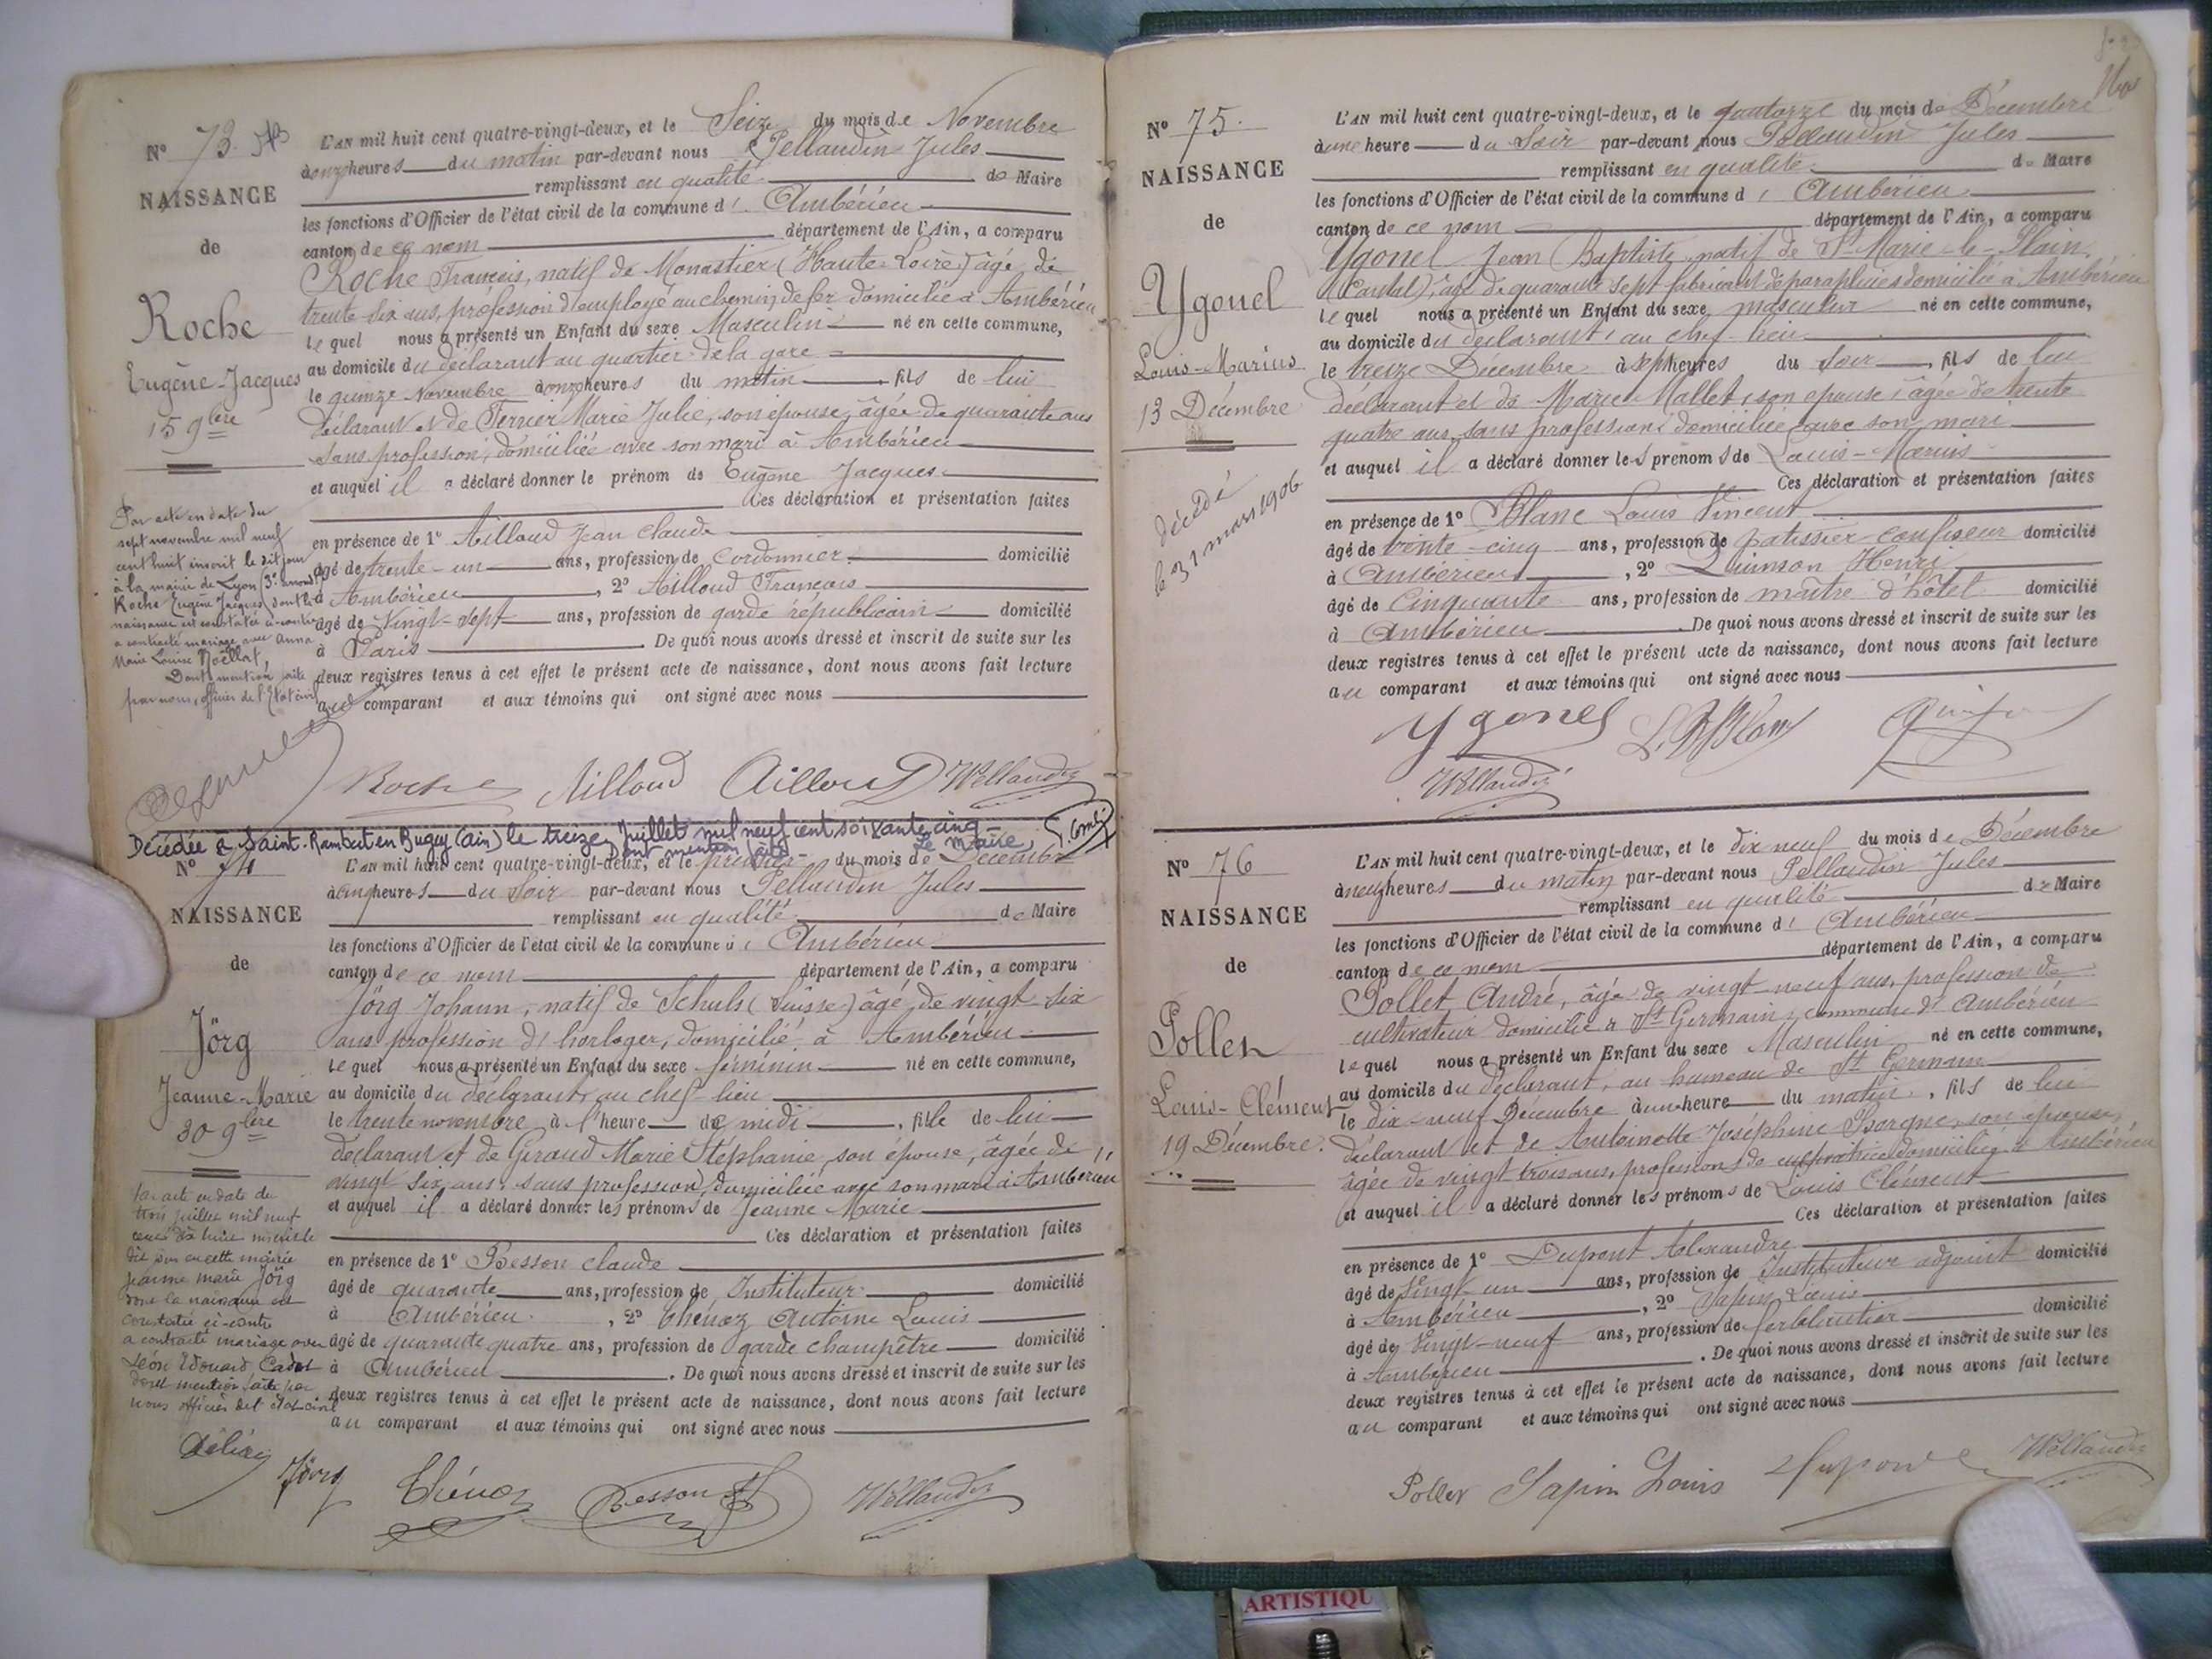 N° 73.
NAISSANCE
de
Roche
Eugène-Jacques
15 9bre
L'AN mil huit cent quatre-vingt-deux, et le Seize du mois de Novembre
à onze heures du matin par-devant nous Pellaudin Jules
remplissant en qualité de Maire
les fonctions d'Officier de l'état civil de la commune d' Ambérieu
canton de ce nom département de l'Ain, a comparu
Roche François, natif de Monastier (Haute-Loire) âgé de
trente six ans, profession d'employé au chemin de fer domicilié à Ambérieu
lequel nous a présenté un Enfant du sexe Masculin né en cette commune,
au domicile du déclarant au quartier de la gare
le quinze Novembre à onze heures du matin, fils de lui
déclarant et de Terrier Marie Julie, son épouse, âgée de quarante ans
sans profession, domiciliée avec son mari à Ambérieu
et auquel il a déclaré donner le prénom de Eugène Jacques
Ces déclaration et présentation faites
en présence de 1° Ailloud Jean Claude
âgé de trente-un ans, profession de Cordonnier domicilié
à Ambérieu, 2° Ailloud François
âgé de Vingt-sept ans, profession de garde républicain domicilié
à Paris. De quoi nous avons dressé et inscrit de suite sur les
deux registres tenus à cet effet le présent acte de naissance, dont nous avons fait lecture
au comparant et aux témoins qui ont signé avec nous
Par acte en date du
sept novembre mil neuf
cent huit inscrit le dit jour
à la mairie de Lyon (3e arrond.)
Roche Eugène Jacques dont la
naissance est constatée ci-contre
a contracté mariage avec Anna
Marie Louise Noëllat,
Dont mention faite
par nous, officier de l'Etat civil
Roche Ailloud Ailloud Pellaudin
Décédée à Saint-Rambert en Bugey (Ain) le treize Juillet mil neuf cent soixante cinq
Dont mention faite Le Maire,
N° 74
NAISSANCE
de
Jörg
Jeanne-Marie
30 9bre
L'AN mil huit cent quatre-vingt-deux, et le premier du mois de Décembre
à cinq heures du Soir par-devant nous Pellaudin Jules
remplissant en qualité de Maire
les fonctions d'Officier de l'état civil de la commune d' Ambérieu
canton de ce nom département de l'Ain, a comparu
Jörg Johann, natif de Schuls (Suisse) âgé de vingt-six
ans profession d'horloger, domicilié à Ambérieu
lequel nous a présenté un Enfant du sexe féminin né en cette commune,
au domicile du déclarant, au chef-lieu
le trente novembre à l'heure de midi, fille de lui
déclarant et de Giraud Marie Stéphanie, son épouse, âgée de
vingt six ans, sans profession, domiciliée avec son mari à Ambérieu
et auquel il a déclaré donner les prénoms de Jeanne Marie
Ces déclaration et présentation faites
en présence de 1° Besson Claude
âgé de quarante ans, profession de Instituteur domicilié
à Ambérieu, 2° Thénoz Antoine Louis
âgé de quarante quatre ans, profession de garde champêtre domicilié
à Ambérieu. De quoi nous avons dressé et inscrit de suite sur les
deux registres tenus à cet effet le présent acte de naissance, dont nous avons fait lecture
au comparant et aux témoins qui ont signé avec nous
Par acte en date du
trois juillet mil neuf
cent dix huit inscrit le
dit jour en cette mairie
Jeanne Marie Jörg
dont la naissance est
constatée ci-contre
a contracté mariage avec
Léon Edouard Cadet
dont mention faite par
nous officier de l'état civil
Jörg Thénoz Besson Pellaudin
N° 75.
NAISSANCE
de
Ygonel
Louis-Marius
13 Décembre
décédé
le 31 mars 1906
L'AN mil huit cent quatre-vingt-deux, et le quatorze du mois de Décembre
à une heure du Soir par-devant nous Pellaudin Jules
remplissant en qualité de Maire
les fonctions d'Officier de l'état civil de la commune d' Ambérieu
canton de ce nom département de l'Ain, a comparu
Ygonel Jean Baptiste natif de Ste Marie-le-Plain
(Cantal), âgé de quarante sept fabricant de parapluies domicilié à Ambérieu
lequel nous a présenté un Enfant du sexe masculin né en cette commune,
au domicile du déclarant, au chef-lieu
le treize Décembre à sept heures du Soir, fils de lui
déclarant et de Marie Mallet, son épouse, âgée de trente
quatre ans, sans profession, domiciliée avec son mari
et auquel il a déclaré donner les prénoms de Louis-Marius
Ces déclaration et présentation faites
en présence de 1° Blanc Louis Vincent
âgé de trente-cinq ans, profession de patissier-confiseur domicilié
à Ambérieu, 2° Quinson Henri
âgé de Cinquante ans, profession de maître d'hôtel domicilié
à Ambérieu. De quoi nous avons dressé et inscrit de suite sur les
deux registres tenus à cet effet le présent acte de naissance, dont nous avons fait lecture
au comparant et aux témoins qui ont signé avec nous
Ygonel L. Blanc Quinson
Pellaudin
N° 76
NAISSANCE
de
Pollet
Louis-Clément
19 Décembre.
L'AN mil huit cent quatre-vingt-deux, et le dix neuf du mois de Décembre
à neuf heures du matin par-devant nous Pellaudin Jules
remplissant en qualité de Maire
les fonctions d'Officier de l'état civil de la commune d' Ambérieu
canton de ce nom département de l'Ain, a comparu
Pollet André, âgé de vingt-neuf ans, profession de
cultivateur domicilié à St Germain, commune d'Ambérieu
lequel nous a présenté un Enfant du sexe Masculin né en cette commune,
au domicile du déclarant, au hameau de St Germain
le dix-neuf Décembre à une heure du matin, fils de lui
déclarant et de Antoinette Joséphine son épouse,
âgée de vingt trois ans, profession de cultivatrice domiciliée à Ambérieu
et auquel il a déclaré donner les prénoms de Louis Clément
Ces déclaration et présentation faites
en présence de 1° Dupont Alexandre
âgé de Vingt-un ans, profession de Instituteur adjoint domicilié
à Ambérieu, 2° Sapin Louis
âgé de Vingt-neuf ans, profession de ferblantier domicilié
à Ambérieu. De quoi nous avons dressé et inscrit de suite sur les
deux registres tenus à cet effet le présent acte de naissance, dont nous avons fait lecture
au comparant et aux témoins qui ont signé avec nous
Pollet Sapin Louis Dupont Pellaudin
ARTISTIQU